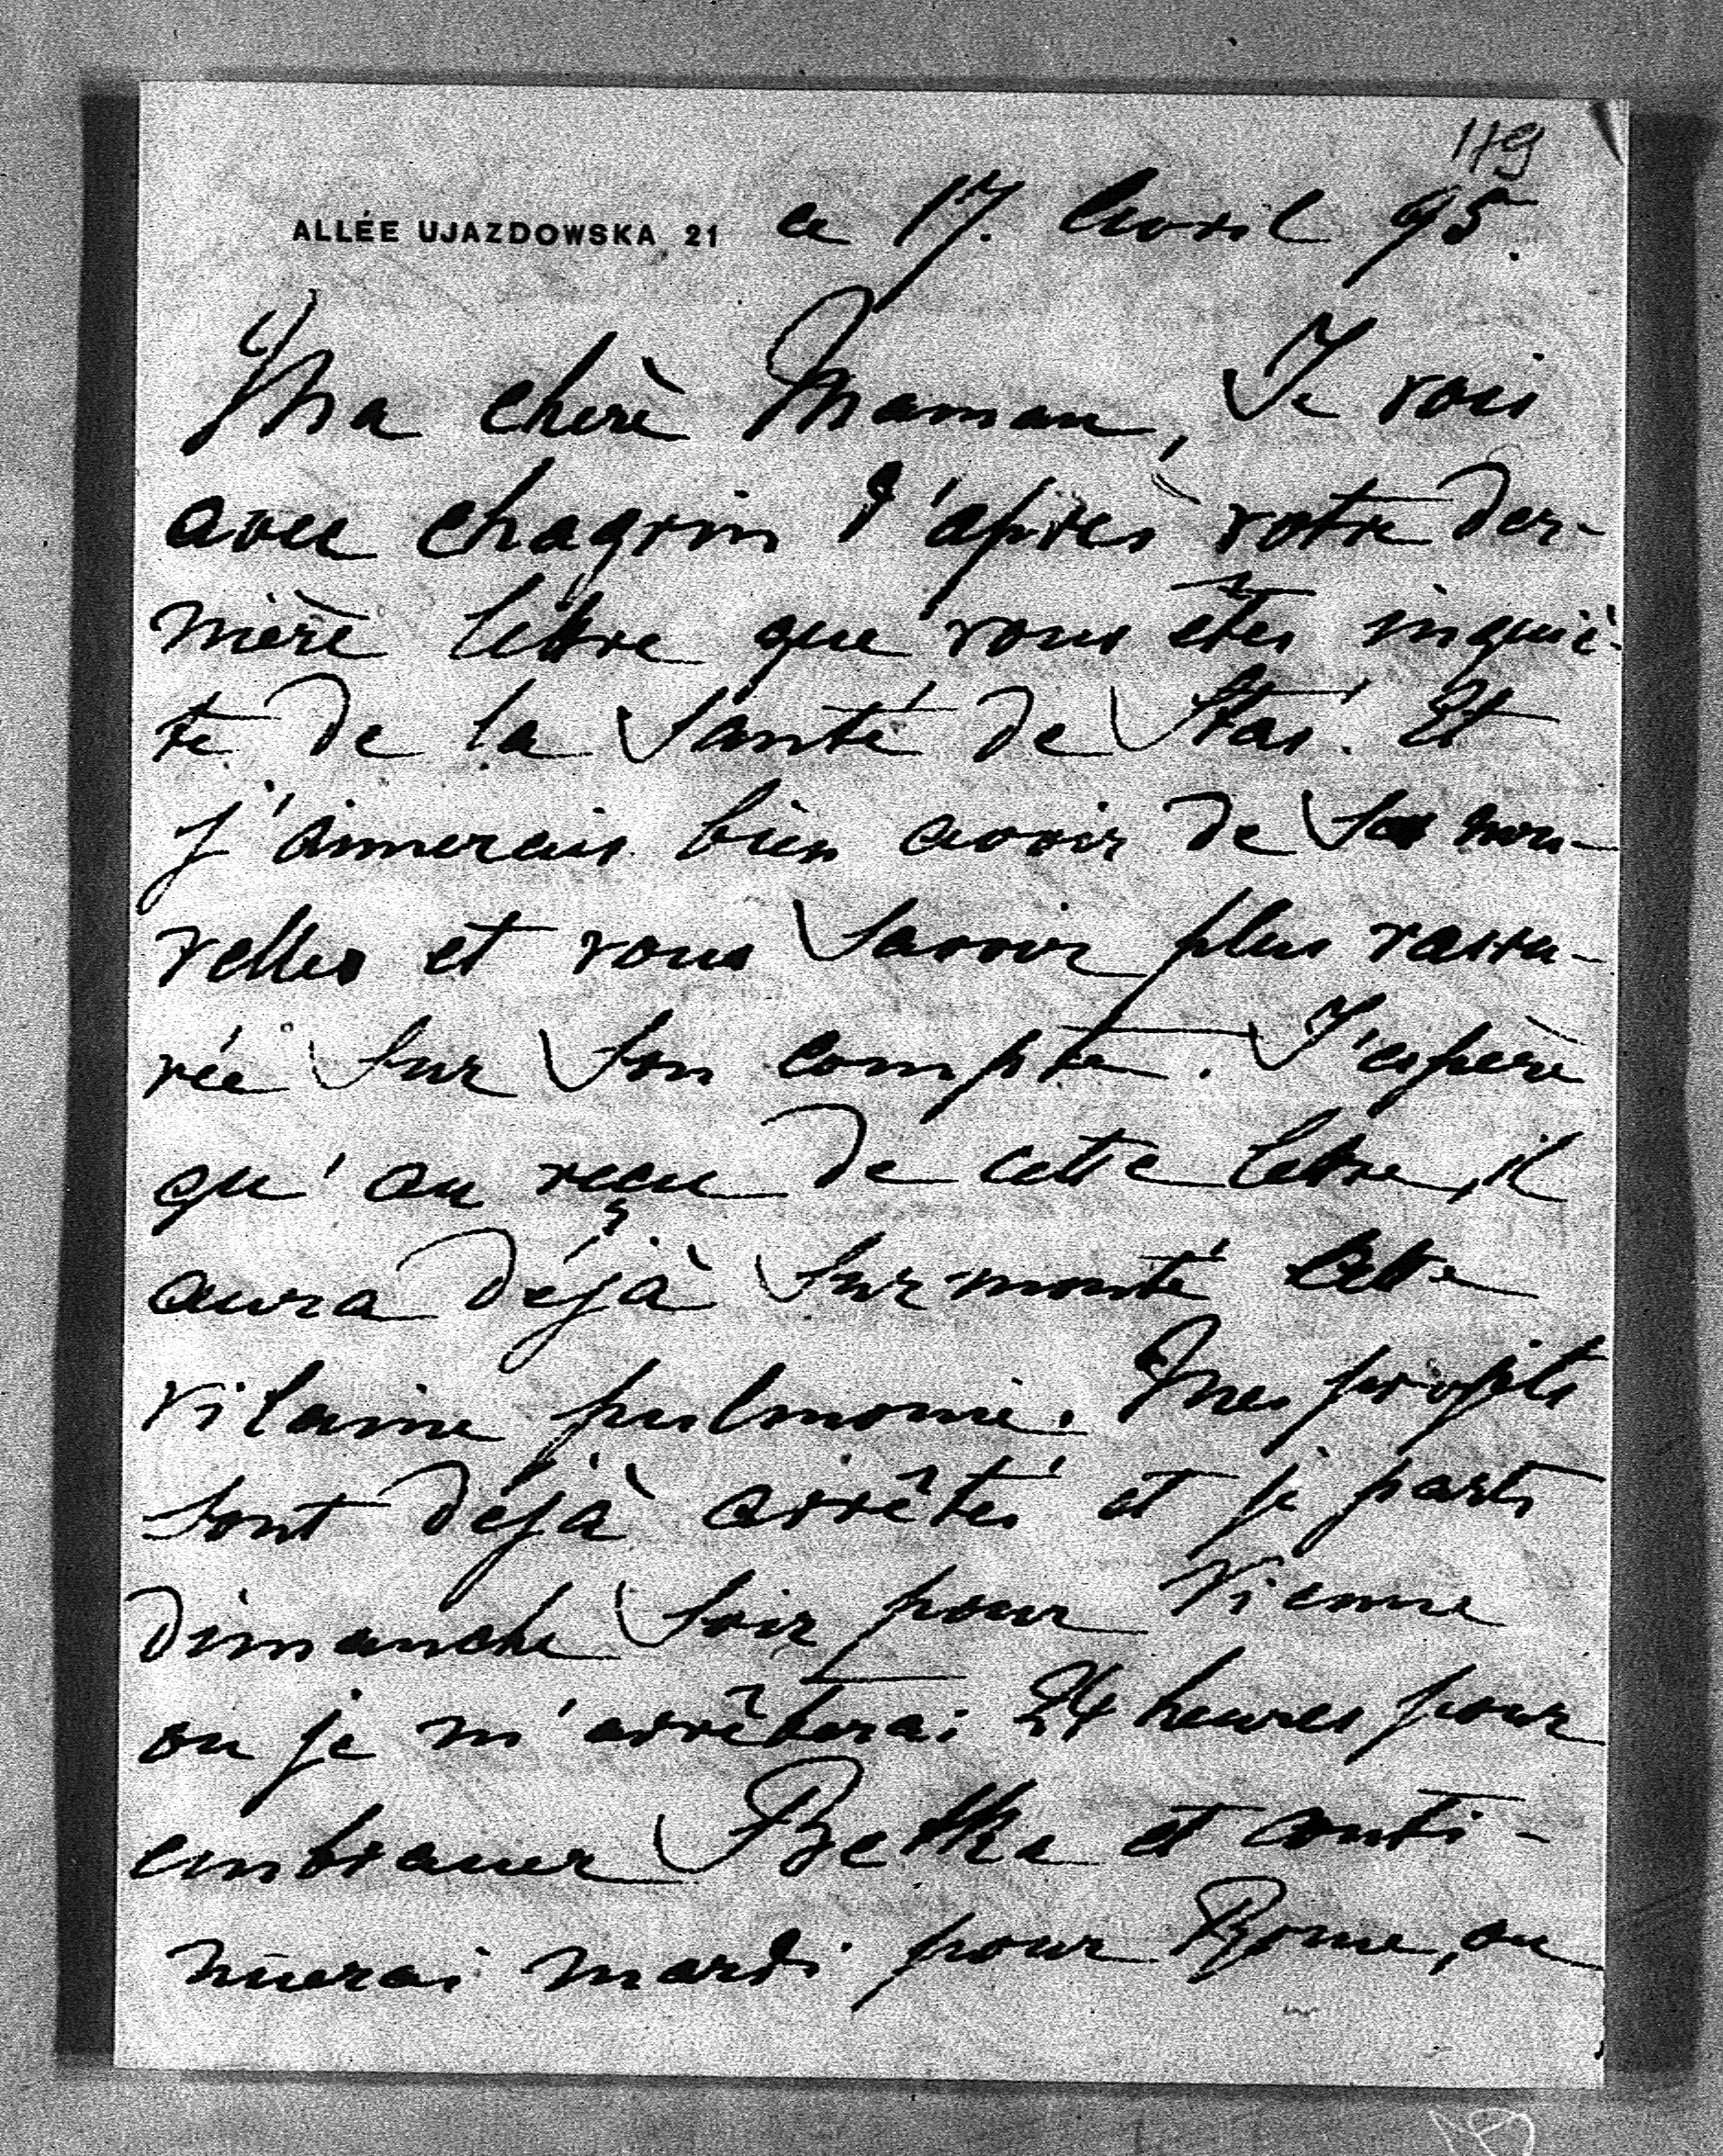 119
ALLÉE UJAZDOWSKA 21 ce 17. Avril 95.
Ma chère Maman, Je vois
avec chagrin d'après votre der-
nière lettre que vous êtes inquiè-
te de la Santé de Staś. Et
j'aimerais bien avoir de ses nou-
velles et vous savoir plus rassu-
rée sur son compte. J'espère
qu'au reçu de cette lettre, il
aura déjà surmonté cette
vilaine pulmonie. Mes projets
sont déjà arrêtés et je parts
dimanche soir pour Vienne
ou je m'arrêterai 24 heures pour
embrasser Betka et conti-
nuerai mardi pour Rome, ou